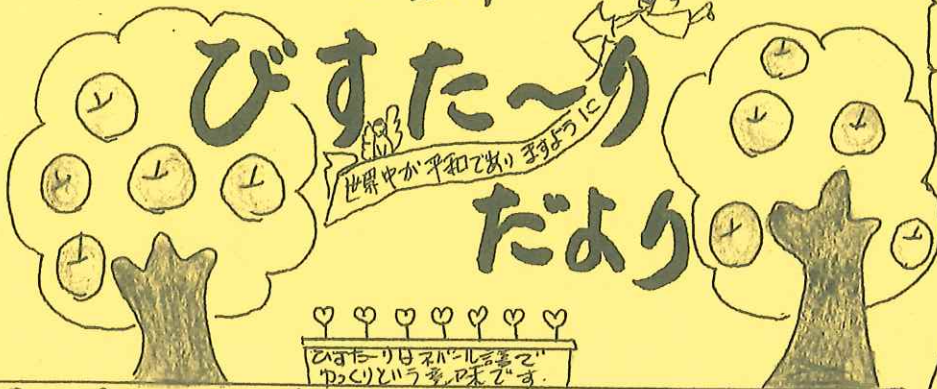 びすた〜り
世界中が平和でありますように
だより
びすた〜りはネパール語で
ゆっくりという意味です.